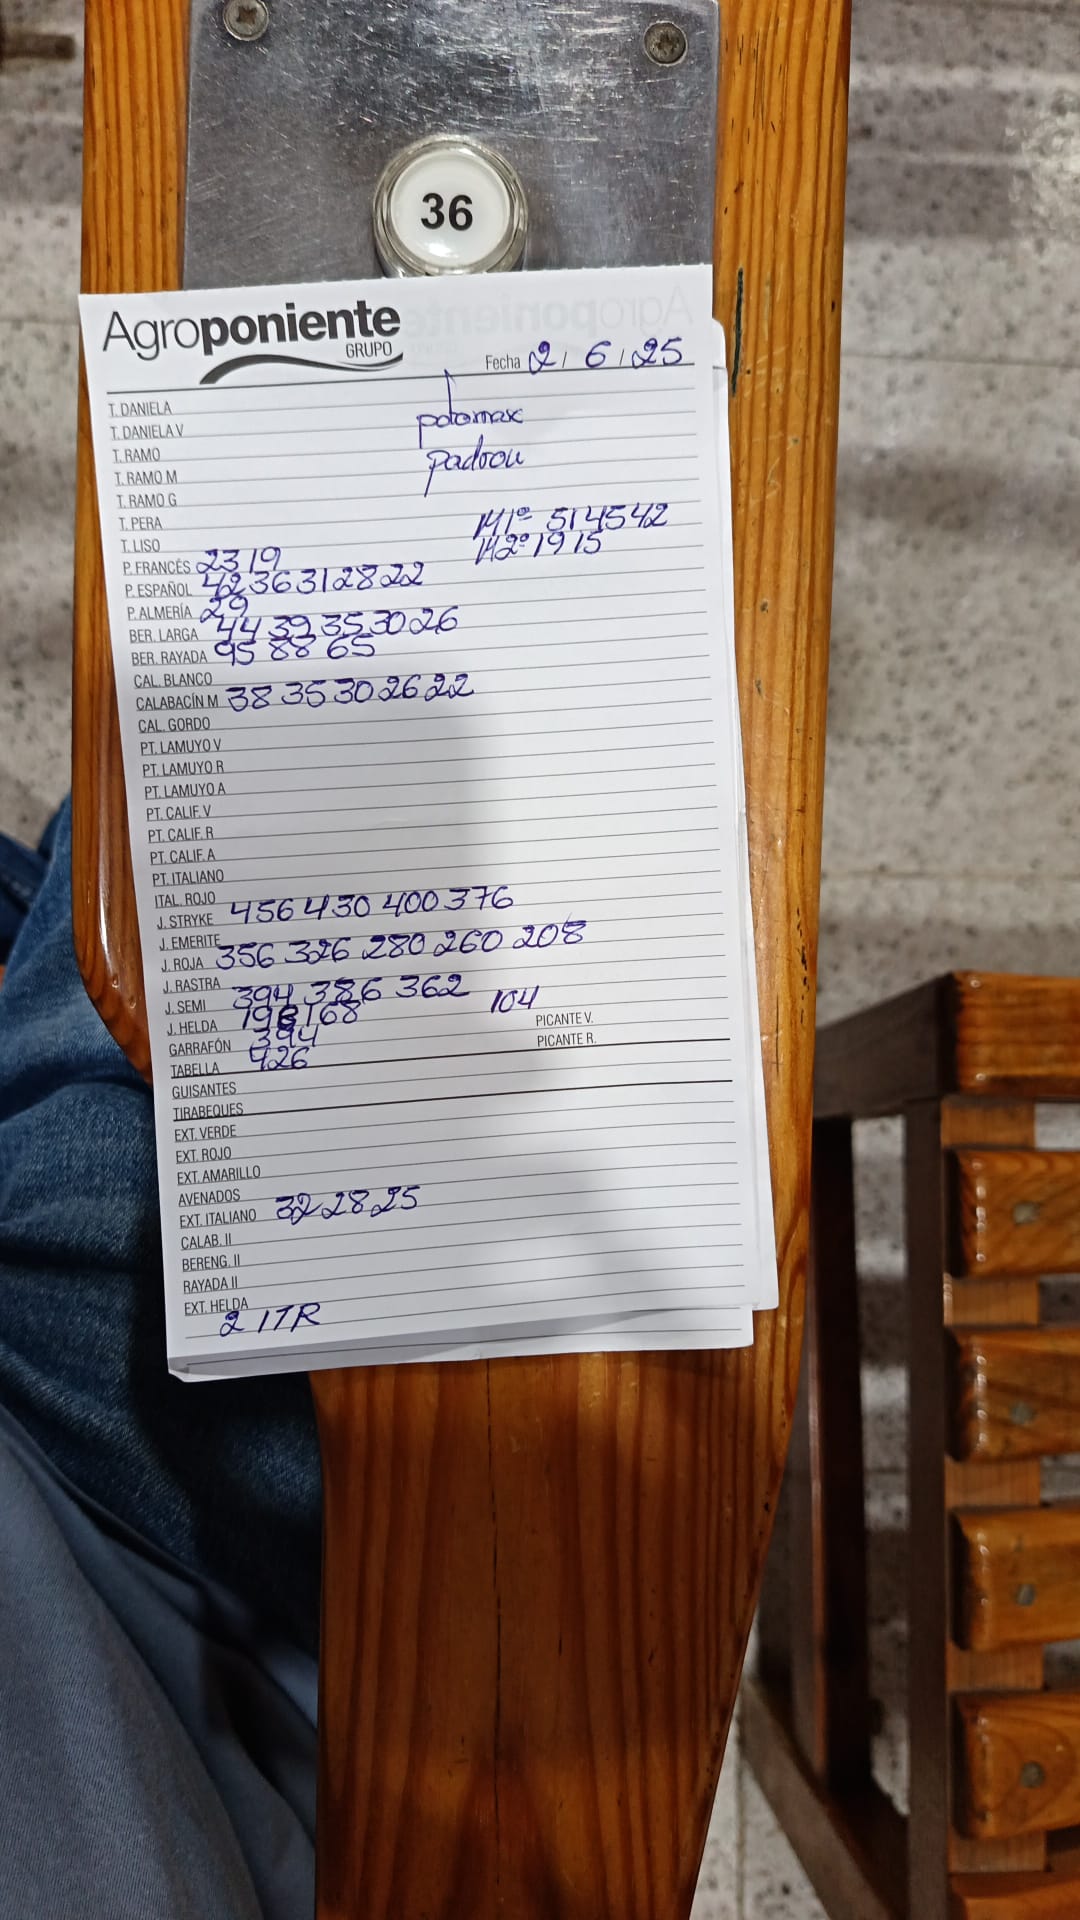 36
Agroponiente
GRUPO
Fecha 2/6/25
T. DANIELA
potomax
T. DANIELA V
T. RAMO
padrou
T. RAMO M
T. RAMO G
T. PERA
M1ª 51 45 42
T. LISO
M2ª 19 15
P. FRANCÉS 23 19
P. ESPAÑOL 42 36 31 28 22
P. ALMERÍA 29
BER. LARGA 44 39 35 30 26
BER. RAYADA 95 88 65
CAL. BLANCO
CALABACÍN M 38 35 30 26 22
CAL. GORDO
PT. LAMUYO V
PT. LAMUYO R
PT. LAMUYO A
PT. CALIF. V
PT. CALIF. R
PT. CALIF. A
PT. ITALIANO
ITAL. ROJO
J. STRYKE 456 430 400 376
J. EMERITE
J. ROJA 356 326 280 260 208
J. RASTRA
J. SEMI 394 386 362
J. HELDA 198 168 104
PICANTE V.
GARRAFÓN 394
PICANTE R.
TABELLA 426
GUISANTES
TIRABEQUES
EXT. VERDE
EXT. ROJO
EXT. AMARILLO
AVENADOS
EXT. ITALIANO 32 28 25
CALAB. II
BERENG. II
RAYADA II
EXT. HELDA
2 ITR